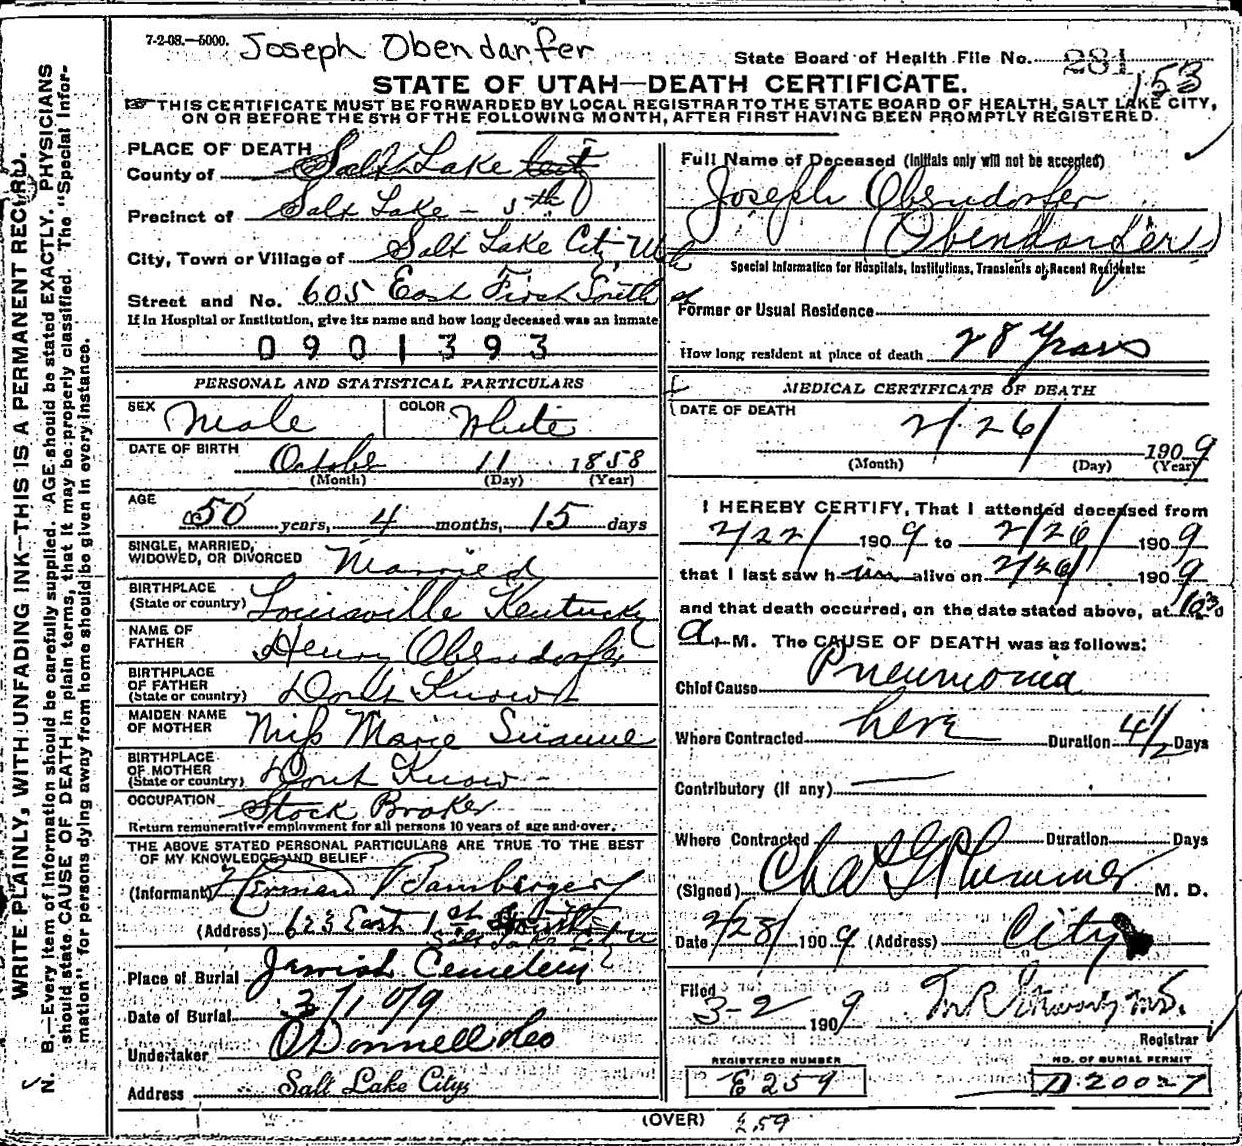 7-2-08.—5000. Joseph Obendarfer
State Board of Health File No. 281 153
STATE OF UTAH—DEATH CERTIFICATE.
THIS CERTIFICATE MUST BE FORWARDED BY LOCAL REGISTRAR TO THE STATE BOARD OF HEALTH, SALT LAKE CITY,
ON OR BEFORE THE 5TH OF THE FOLLOWING MONTH, AFTER FIRST HAVING BEEN PROMPTLY REGISTERED.
WRITE PLAINLY, WITH UNFADING INK—THIS IS A PERMANENT RECORD.
N. B.—Every item of information should be carefully supplied. AGE should be stated EXACTLY. PHYSICIANS
should state CAUSE OF DEATH in plain terms, that it may be properly classified. The "Special Infor-
mation" for persons dying away from home should be given in every instance.
PLACE OF DEATH
County of Salt Lake
Precinct of Salt Lake - 5th
City, Town or Village of Salt Lake City, Utah
Street and No. 605 East First South st
If in Hospital or Institution, give its name and how long deceased was an inmate
0901393
PERSONAL AND STATISTICAL PARTICULARS
SEX Male COLOR White
DATE OF BIRTH October 11 1858
(Month) (Day) (Year)
AGE 50 years, 4 months, 15 days
SINGLE, MARRIED,
WIDOWED, OR DIVORCED Married
BIRTHPLACE
(State or country) Louisville Kentucky
NAME OF
FATHER Henry Oberndorfer
BIRTHPLACE
OF FATHER
(State or country) Dont Know
MAIDEN NAME
OF MOTHER Miss Marie
BIRTHPLACE
OF MOTHER
(State or country) Dont Know -
OCCUPATION Stock Broker
Return remunerative employment for all persons 10 years of age and over.
THE ABOVE STATED PERSONAL PARTICULARS ARE TRUE TO THE BEST
OF MY KNOWLEDGE AND BELIEF
(Informant) Herman Bamberger
(Address) 623 East 1st South
Salt Lake City U
Place of Burial Jewish Cemetery
Date of Burial 3/1 09
Undertaker O'Donnell & Co
Address Salt Lake City
Full Name of Deceased (Initials only will not be accepted)
Joseph Oberndorfer
(Obendarfer)
Special Information for Hospitals, Institutions, Transients or Recent Residents:
Former or Usual Residence
How long resident at place of death 28 Years
MEDICAL CERTIFICATE OF DEATH
DATE OF DEATH
2/26/ 1909
(Month) (Day) (Year)
I HEREBY CERTIFY, That I attended deceased from
2/22/ 1909 to 2/26/ 1909
that I last saw him alive on 2/26/ 1909
and that death occurred, on the date stated above, at 10 30
a. M. The CAUSE OF DEATH was as follows:
Chief Cause Pneumonia
Where Contracted here Duration 4 1/2 Days
Contributory (if any)
Where Contracted Duration Days
(Signed) Chas G Plummer M. D.
Date 2/28/ 1909 (Address) City
Filed 3-2 1909 M.D.
Registrar
REGISTERED NUMBER NO. OF BURIAL PERMIT
E 259 D 20027
(OVER) 259